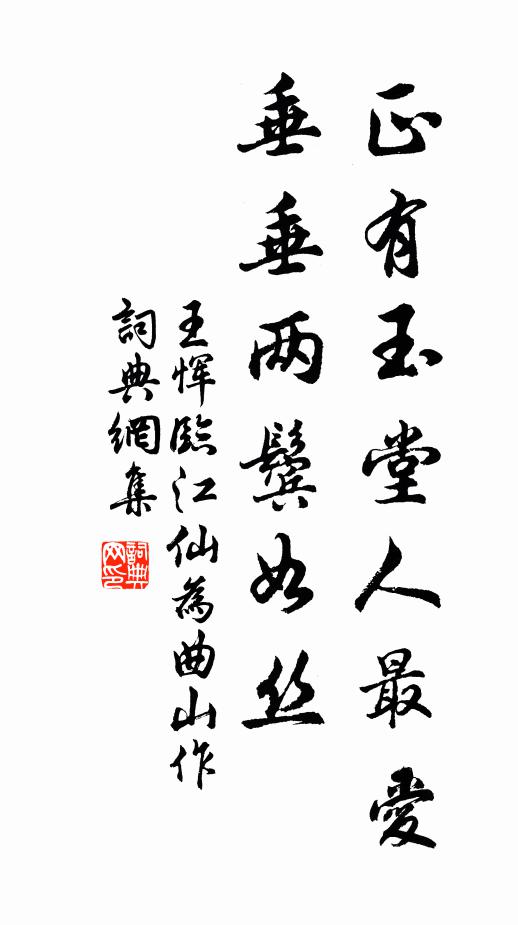 正有玉堂人最愛
垂垂两鬓如丝
王恽臨江仙為曲山作
詞典網集
詞典网印